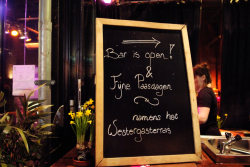 Bar is open!
&
Fijne Paasdagen
namens het
Westergasterras